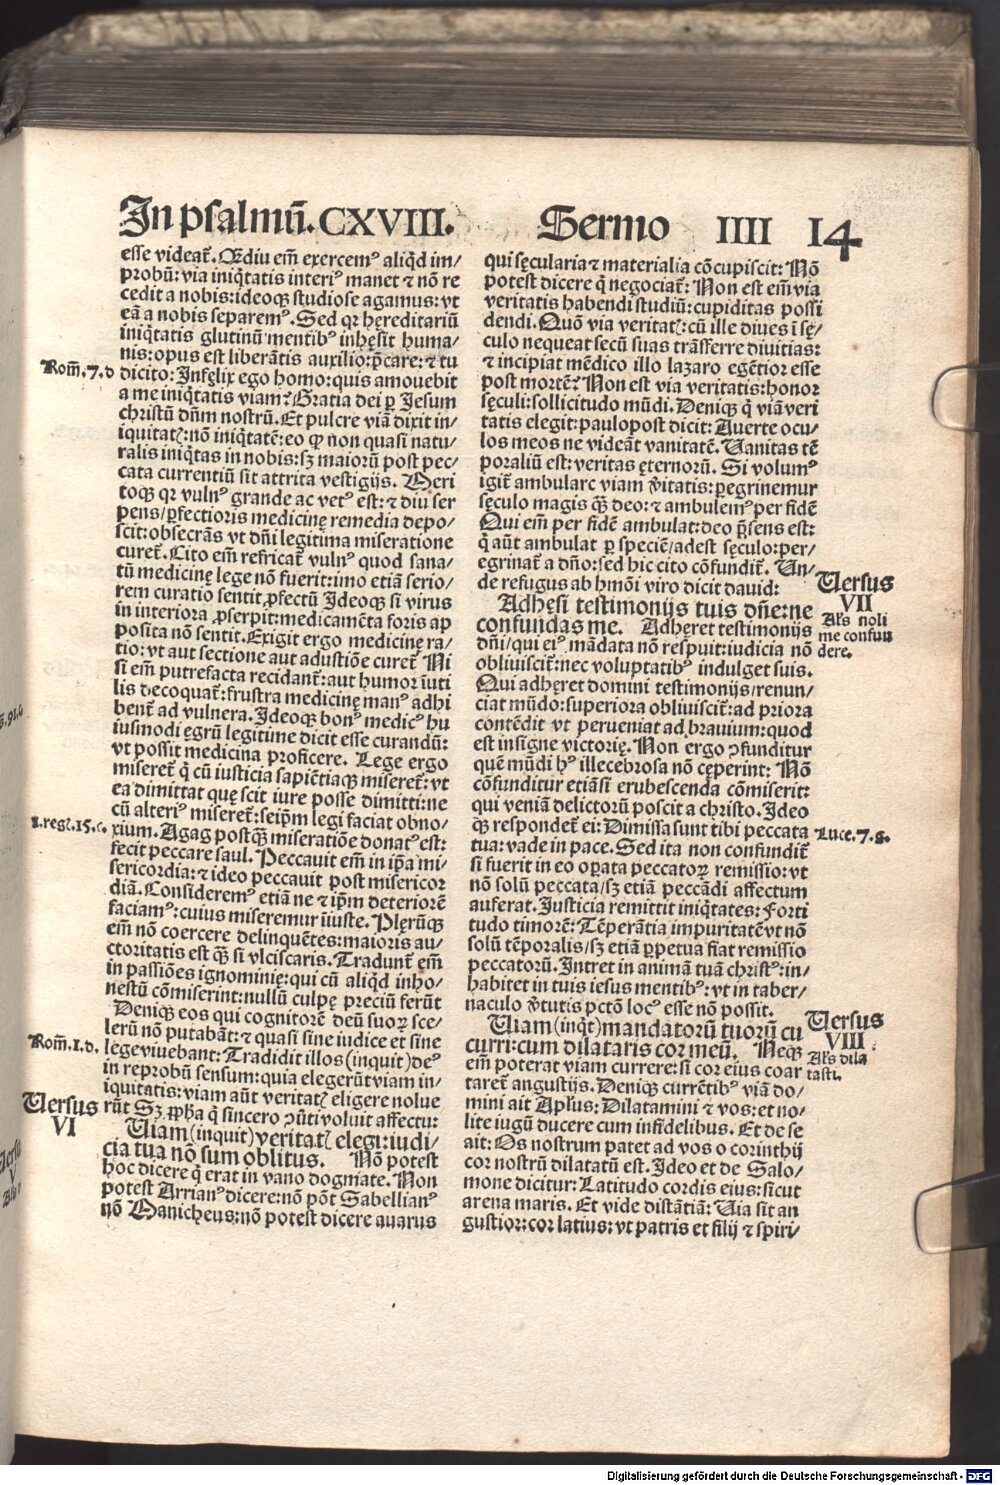 In psalmū. CXVIII. Sermo IIII 14
esse videat̄. Odiu em̄ exercemꝰ aliq̇d im/
probū: via iniq̇tatis interiꝰ manet ⁊ nō re
cedit a nobis: ideoqꝫ studiose agamus: vt
eā a nobis separemꝰ. Sed qꝛ hęreditariū
iniq̇tatis glutinū mentibꝰ inhęsit huma/
nis: opus est liberātis auxilio: p̄care: ⁊ tu
Rom̄. 7. d
dicito: Infęlix ego homo: quis amouebit
a me iniq̇tatis viam? Gratia dei ꝑ Jesum
christū dn̄m nostrū. Et pulcre viā dixit in/
iquitatꝭ: nō iniq̇tatē: eo ꝙ non quasi natu/
ralis iniq̇tas in nobis: sꝫ maiorū post pec/
cata currentiū sit attrita vestigijs. Meri
toqꝫ qꝛ vulnꝰ grande ac vetꝰ est: ⁊ diu ser
pens/ ꝑfectioris medicinę remedia depo/
scit: obsecrās vt dn̄i legitima miseratione
curet̄. Cito em̄ refricat̄ vulnꝰ quod sana/
tū medicinę lege nō fuerit: imo etiā serio/
rem curatio sentit ꝓfectū Ideoqꝫ si virus
in interiora ꝓserpit: medicamēta foris ap
posita nō sentit. Exigit ergo medicinę ra/
tio: vt aut sectione aut adustiōe curet̄ Ni
si em̄ putrefacta recidant̄: aut humor īuti
lis decoquat̄: frustra medicinę manꝰ adhi
bent̄ ad vulnera. Ideoqꝫ bonꝰ medicꝰ hu
iusmodi ęgrū legitime dicit esse curandū:
vt possit medicina proficere. Lege ergo
miseret̄ q̇ cū iusticia sapiētiaqꝫ miseret̄: vt
ea dimittat quę scit iure posse dimitti: ne
cū alteriꝰ miseret̄: seip̄m legi faciat obno/
1. regꝭ. 15. c.
xium. Agag postq̄ꝫ miseratiōe donatꝰ est:
fecit peccare saul. Peccauit em̄ in ip̄a mi/
sericordia: ⁊ ideo peccauit post misericor
diā. Consideremꝰ etiā ne ⁊ ip̄m deteriorē
faciamꝰ: cuius miseremur iiuste. Plęrūqꝫ
em̄ nō coercere delinquētes: maioris au/
ctoritatis est q̄ꝫ si vlciscaris. Tradunt̄ em̄
in passiōes ignominię: qui cū aliq̇d inho/
nestū cōmiserint: nullū culpę preciū ferūt
Deniqꝫ eos qui cognitorē deū suoꝝ sce/
lerū nō putabāt: ⁊ quasi sine iudice et sine
Rom̄. 1. d.
lege viuebant: Tradidit illos (inquit) deꝰ
in reprobū sensum: quia elegerūt viam in/
iquitatis: viam aūt veritatꝭ eligere nolue
rūt Sꝫ ꝓp̄ha q̇ sincero ꝯūti voluit affectu:
Versus
VI
Uiam (inquit) veritatꝭ elegi: iudi/
cia tua nō sum oblitus. Nō potest
hoc dicere q̇ erat in vano dogmate. Non
potest Arrianꝰ dicere: nō pōt Sabellianꝰ
nō Manicheus: nō potest dicere auarus
qui sęcularia ⁊ materialia cōcupiscit: Nō
potest dicere q̇ negociat̄: Non est em̄ via
veritatis habendi studiū: cupiditas possi
dendi. Quō via veritatꝭ: cū ille diues ī sę/
culo nequeat secū suas trāsferre diuitias:
⁊ incipiat mēdico illo lazaro egētior esse
post mortē? Non est via veritatis: honor
sęculi: sollicitudo mūdi. Deniqꝫ q̇ viā veri
tatis elegit: paulopost dicit: Auerte ocu/
los meos ne videāt vanitatē. Vanitas tē
poraliū est: veritas ęternorū. Si volumꝰ
igit̄ ambulare viam v̄itatis: peregrinemur
sęculo magis q̄ꝫ deo: ⁊ ambulemꝰ per fidē
Qui em̄ per fidē ambulat: deo p̄sens est:
q̇ aūt ambulat ꝑ speciē/ adest sęculo: per/
egrinat̄ a dn̄o: sed hic cito cōfundit̄. Vn/
de refugus ab hm̄oi viro dicit dauid:
Versus
VII
Als noli
me confun
dere.
Adhęsi testimonijs tuis dn̄e: ne
confundas me. Adhęret testimonijs
dn̄i/ qui eiꝰ mādata nō respuit: iudicia nō
obliuiscit̄: nec voluptatibꝰ indulget suis.
Qui adhęret domini testimonijs/ renun/
ciat mūdo: superiora obliuiscit̄: ad priora
contēdit vt perueniat ad brauium: quod
est insigne victorię. Non ergo ꝯfunditur
quē mūdi hꝰ illecebrosa nō cęperint: Nō
cōfunditur etiāsi erubescenda cōmiserit:
qui veniā delictorū poscit a christo. Ideo
Luce. 7. g.
qꝫ respondet̄ ei: Dimissa sunt tibi peccata
tua: vade in pace. Sed ita non confundit̄
si fuerit in eo oꝑata peccatoꝝ remissio: vt
nō solū peccata/ sꝫ etiā peccādi affectum
auferat. Iusticia remittit iniq̇tates: Forti
tudo timorē: Tēperātia impuritatē vt nō
solū tēporalis/ sꝫ etiā ꝑpetua fiat remissio
peccatorū. Intret in animā tuā christꝰ: in/
habitet in tuis iesus mentibꝰ: vt in taber/
naculo v̄tutis pctō locꝰ esse nō possit.
Versus
VIII
Als dila
tasti.
Uiam (inq̇t) mandatorū tuorū cu
curri: cum dilataris cor meū. Neqꝫ
em̄ poterat viam currere: si cor eius coar
taret̄ angustijs. Deniqꝫ currētibꝰ viā do/
mini ait Apl̄us: Dilatamini ⁊ vos: et no/
lite iugū ducere cum infidelibus. Et de se
ait: Os nostrum patet ad vos o corinthij
cor nostrū dilatatū est. Ideo et de Salo/
mone dicitur: Latitudo cordis eius: sicut
arena maris. Et vide distātiā: Via sit an
gustior: cor latius: vt patris et filij ⁊ spiri/
Digitalisierung gefördert durch die Deutsche Forschungsgemeinschaft - DFG